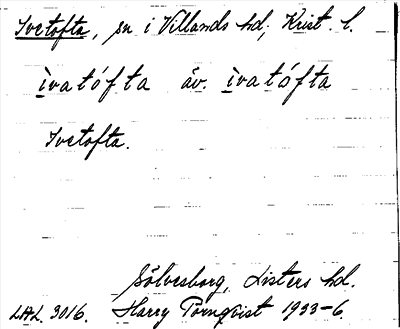 Ivetofta, sn i Villands hd, Krist. l.
ìvatófta äv. ìvatófta
Ivetofta.
Sölvesborg, Listers hd.
LAL 3016. Harry Törnqvist 1933-6.